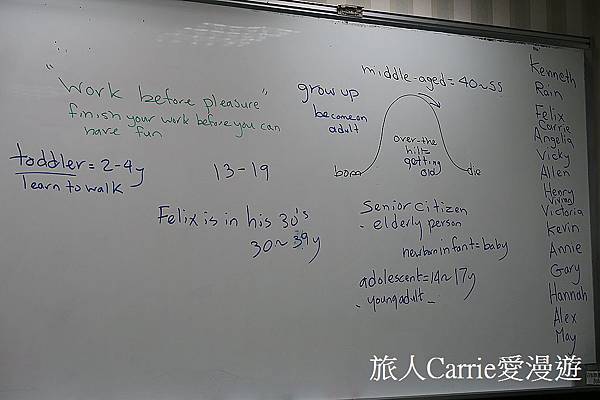 "Work before pleasure"
finish your work before you can
have fun
toddler = 2-4y
learn to walk
13-19
Felix is in his 30's
30~39y
grow up
become an
adult
middle-aged = 40~55
over-the
hill=
getting
old
born
die
Senior citizen
- elderly person
newborn infant = baby
adolescent = 14~17y
- young adult -
Kenneth
Rain
Felix
Carrie
Angelia
Vicky
Allen
Henry
Vivian
Victoria
Kevin
Annie
Gary
Hannah
Alex
May
旅人Carrie愛漫遊